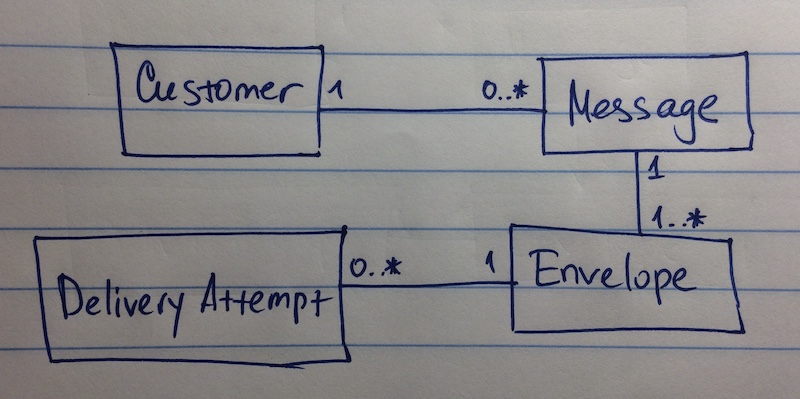 Customer
1
0..*
Message
1
1..*
Delivery Attempt
0..*
1
Envelope